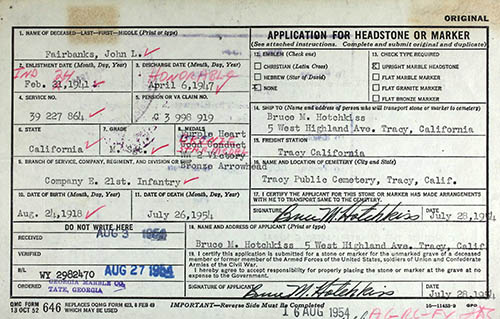 ORIGINAL
1. NAME OF DECEASED—LAST—FIRST—MIDDLE (Print or type)
Fairbanks, John L.
2. ENLISTMENT DATE (Month, Day, Year)
3. DISCHARGE DATE (Month, Day, Year)
Ind
HONORABLE
Feb. 1941
April 6, 1947
4. SERVICE NO.
5. PENSION OR VA CLAIM NO.
39 227 864
C 3 998 919
6. STATE
7. GRADE
8. MEDALS
California
Purple Heart
Good Conduct
WW 2 Victory
Bronze Arrowhead
9. BRANCH OF SERVICE, COMPANY, REGIMENT, AND DIVISION OR SHIP
Company E. 21st. Infantry
10. DATE OF BIRTH (Month, Day, Year)
11. DATE OF DEATH (Month, Day, Year)
Aug. 24, 1918
July 26, 1954
DO NOT WRITE HERE
RECEIVED
AUG 3 1954
VERIFIED
B/L
WY 2982470
AUG 27 1954
ORDERED
GEORGIA MARBLE CO
TATE, GEORGIA
APPLICATION FOR HEADSTONE OR MARKER
(See attached instructions. Complete and submit original and duplicate)
12. EMBLEM (Check one)
CHRISTIAN (Latin Cross)
HEBREW (Star of David)
X NONE
13. CHECK TYPE REQUIRED
X UPRIGHT MARBLE HEADSTONE
FLAT MARBLE MARKER
FLAT GRANITE MARKER
FLAT BRONZE MARKER
14. SHIP TO (Name and address of person who will transport stone or marker to cemetery)
Bruce M. Hotchkiss
5 West Highland Ave. Tracy, California
15. FREIGHT STATION
Tracy California
16. NAME AND LOCATION OF CEMETERY (City and State)
Tracy Public Cemetery, Tracy, Calif.
17. I CERTIFY THE APPLICANT FOR THIS STONE OR MARKER HAS MADE ARRANGEMENTS
WITH ME TO TRANSPORT SAME TO THE CEMETERY.
SIGNATURE Bruce M. Hotchkiss July 28, 1954
18. NAME AND ADDRESS OF APPLICANT (Print or type)
Bruce M. Hotchkiss 5 West Highland Ave. Tracy, Calif
19. I certify this application is submitted for a stone or marker for the unmarked grave of a deceased
member or former member of the Armed Forces of the United States, soldiers of Union and Confederate
Armies of the Civil War.
I hereby agree to accept responsibility for properly placing the stone or marker at the grave at no
expense to the Government.
SIGNATURE OF APPLICANT Bruce M. Hotchkiss July 28, 1954
QMC FORM
13 OCT 52 646 REPLACES OQMG FORM 623, 8 FEB 49
WHICH IS OBSOLETE
IMPORTANT—Reverse Side Must Be Completed
GPO
16 AUG 1954